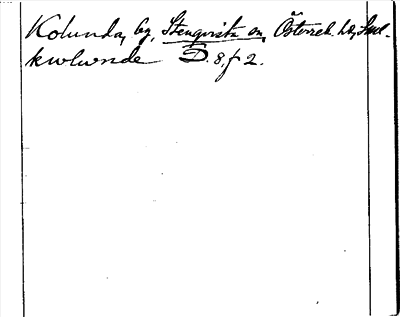 Kolunda, by, Stenqvista sn, Österrek. hd, Söd.
kwlwnde D. 8, f 2.